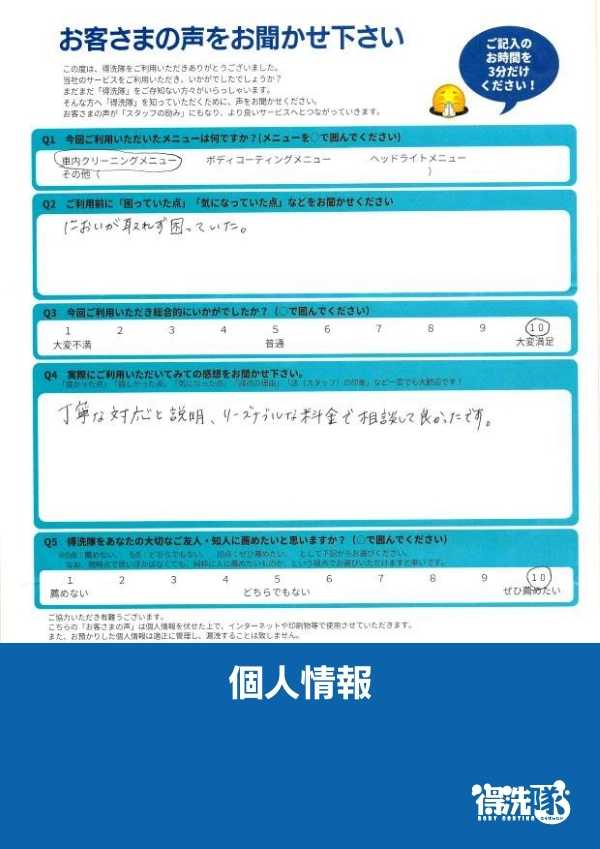 お客さまの声をお聞かせ下さい
ご記入の
お時間を
3分だけ
ください！
この度は、得洗隊をご利用いただきありがとうございました。
当社のサービスをご利用いただき、いかがでしたでしょうか？
まだまだ「得洗隊」をご存知ない方々がいらっしゃいます。
そんな方へ「得洗隊」を知っていただくために、声をお聞かせください。
お客さまの声が「スタッフの励み」にもなり、より良いサービスへとつながっていきます。
Q1 今回ご利用いただいたメニューは何ですか？(メニューを○で囲んでください)
車内クリーニングメニュー ボディコーティングメニュー ヘッドライトメニュー
その他（ ）
Q2 ご利用前に「困っていた点」「気になっていた点」などをお聞かせください
においが取れず困っていた。
Q3 今回ご利用いただき総合的にいかがでしたか？（○で囲んでください）
1 2 3 4 5 6 7 8 9 10
大変不満 普通 大変満足
Q4 実際にご利用いただいてみての感想をお聞かせ下さい。
丁寧な対応と説明、リーズナブルな料金で相談して良かったです。
Q5 得洗隊をあなたの大切なご友人・知人に薦めたいと思いますか？（○で囲んでください）
1 2 3 4 5 6 7 8 9 10
薦めない どちらでもない ぜひ薦めたい
ご協力いただき有難うございます。
こちらの「お客さまの声」は個人情報を伏せた上で、インターネットや印刷物等で使用させていただきます。
また、お預かりした個人情報は適正に管理し、漏洩することは致しません。
個人情報
得洗隊
BODY COATING